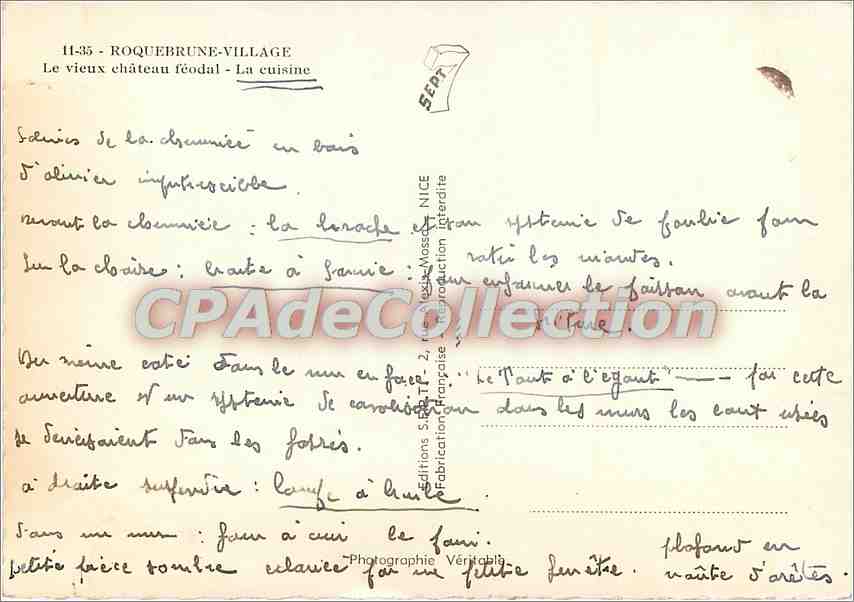 11-35 - ROQUEBRUNE-VILLAGE
Le vieux château féodal - La cuisine
SEPT
Solives de la cheminée en bois
d'olivier imputrescible.
devant la cheminée : la broche et son système de poulie pour
rotir les viandes.
Sur la chaire : boite à farine : pour enfariner le poisson avant la
friture.
CPAdeCollection
Du même coté dans le mur en face : "Le Tout à l'égout" — par cette
ouverture et un système de canalisation dans les murs les eaux usées
se déversaient dans les fossés.
à droite suspendue : lampe à huile.
dans un mur : four à cuir le pain.
petite pièce sombre eclairée par une petite fenêtre.
plafond en
voûte d'arêtes.
Editions S.E.P.T. - 2, rue Alexis-Mossa - NICE
Fabrication Française - Reproduction Interdite
Photographie Véritable